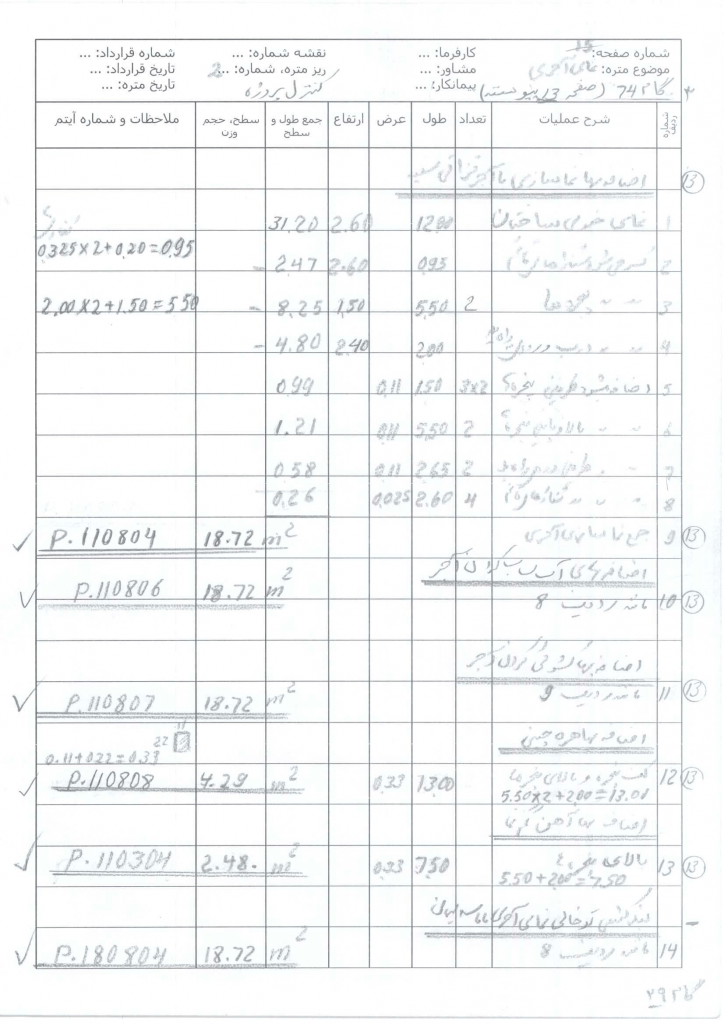 شماره صفحه: 15 کارفرما: ... نقشه شماره: ... شماره قرارداد: ...
موضوع متره: نمای آجری مشاور: ... ریز متره، شماره: ...2 تاریخ قرارداد: ...
742 (صفحه 13 پیوسته) پیمانکار: ... کنترل پروژه تاریخ متره: ...
شماره ردیف شرح عملیات تعداد طول عرض ارتفاع جمع طول و سطح سطح، حجم وزن ملاحظات و شماره آیتم
13 اضافه بها نماسازی با آجر قزاقی سفید
1 نمای خارجی ساختمان 12.00 2.60 31.20
2 کسر می‌شود 0.95 2.60 - 2.47 0.325×2+0.20=0.95
3 " " پنجره‌ها 2 5.50 1.50 - 8.25 2.00×2+1.50=5.50
4 " " درب ورودی 2.00 2.40 - 4.80
5 اضافه میشود طرفین پنجره 3×2 1.50 0.11 0.99
6 " " بالا و پایین پنجره 2 5.50 0.11 1.21
7 " " طرفین درب 2 2.65 0.11 0.58
8 " " 4 2.60 0.025 0.26
13 9 جمع نماسازی آجری 18.72 m² P.110804
اضافه بهای آب ساب کردن آجر
13 10 مانند ردیف 8 18.72 m² P.110806
اضافه بها کشویی کردن آجر
13 11 مانند ردیف 9 18.72 m² P.110807
اضافه بها هره چینی 11 22
0.11+0.22=0.33
13 12 کف پنجره و بالای پنجره‌ها 13.00 0.33 m² 4.29 P.110808
5.50×2+2.00=13.00
اضافه بها
13 13 بالای پنجره 7.50 0.33 m² 2.48 P.110304
5.50+2.00=7.50
- بندکشی توخالی نمای آجری با ماسه سیمان
14 مانند ردیف 8 18.72 m² P.180804